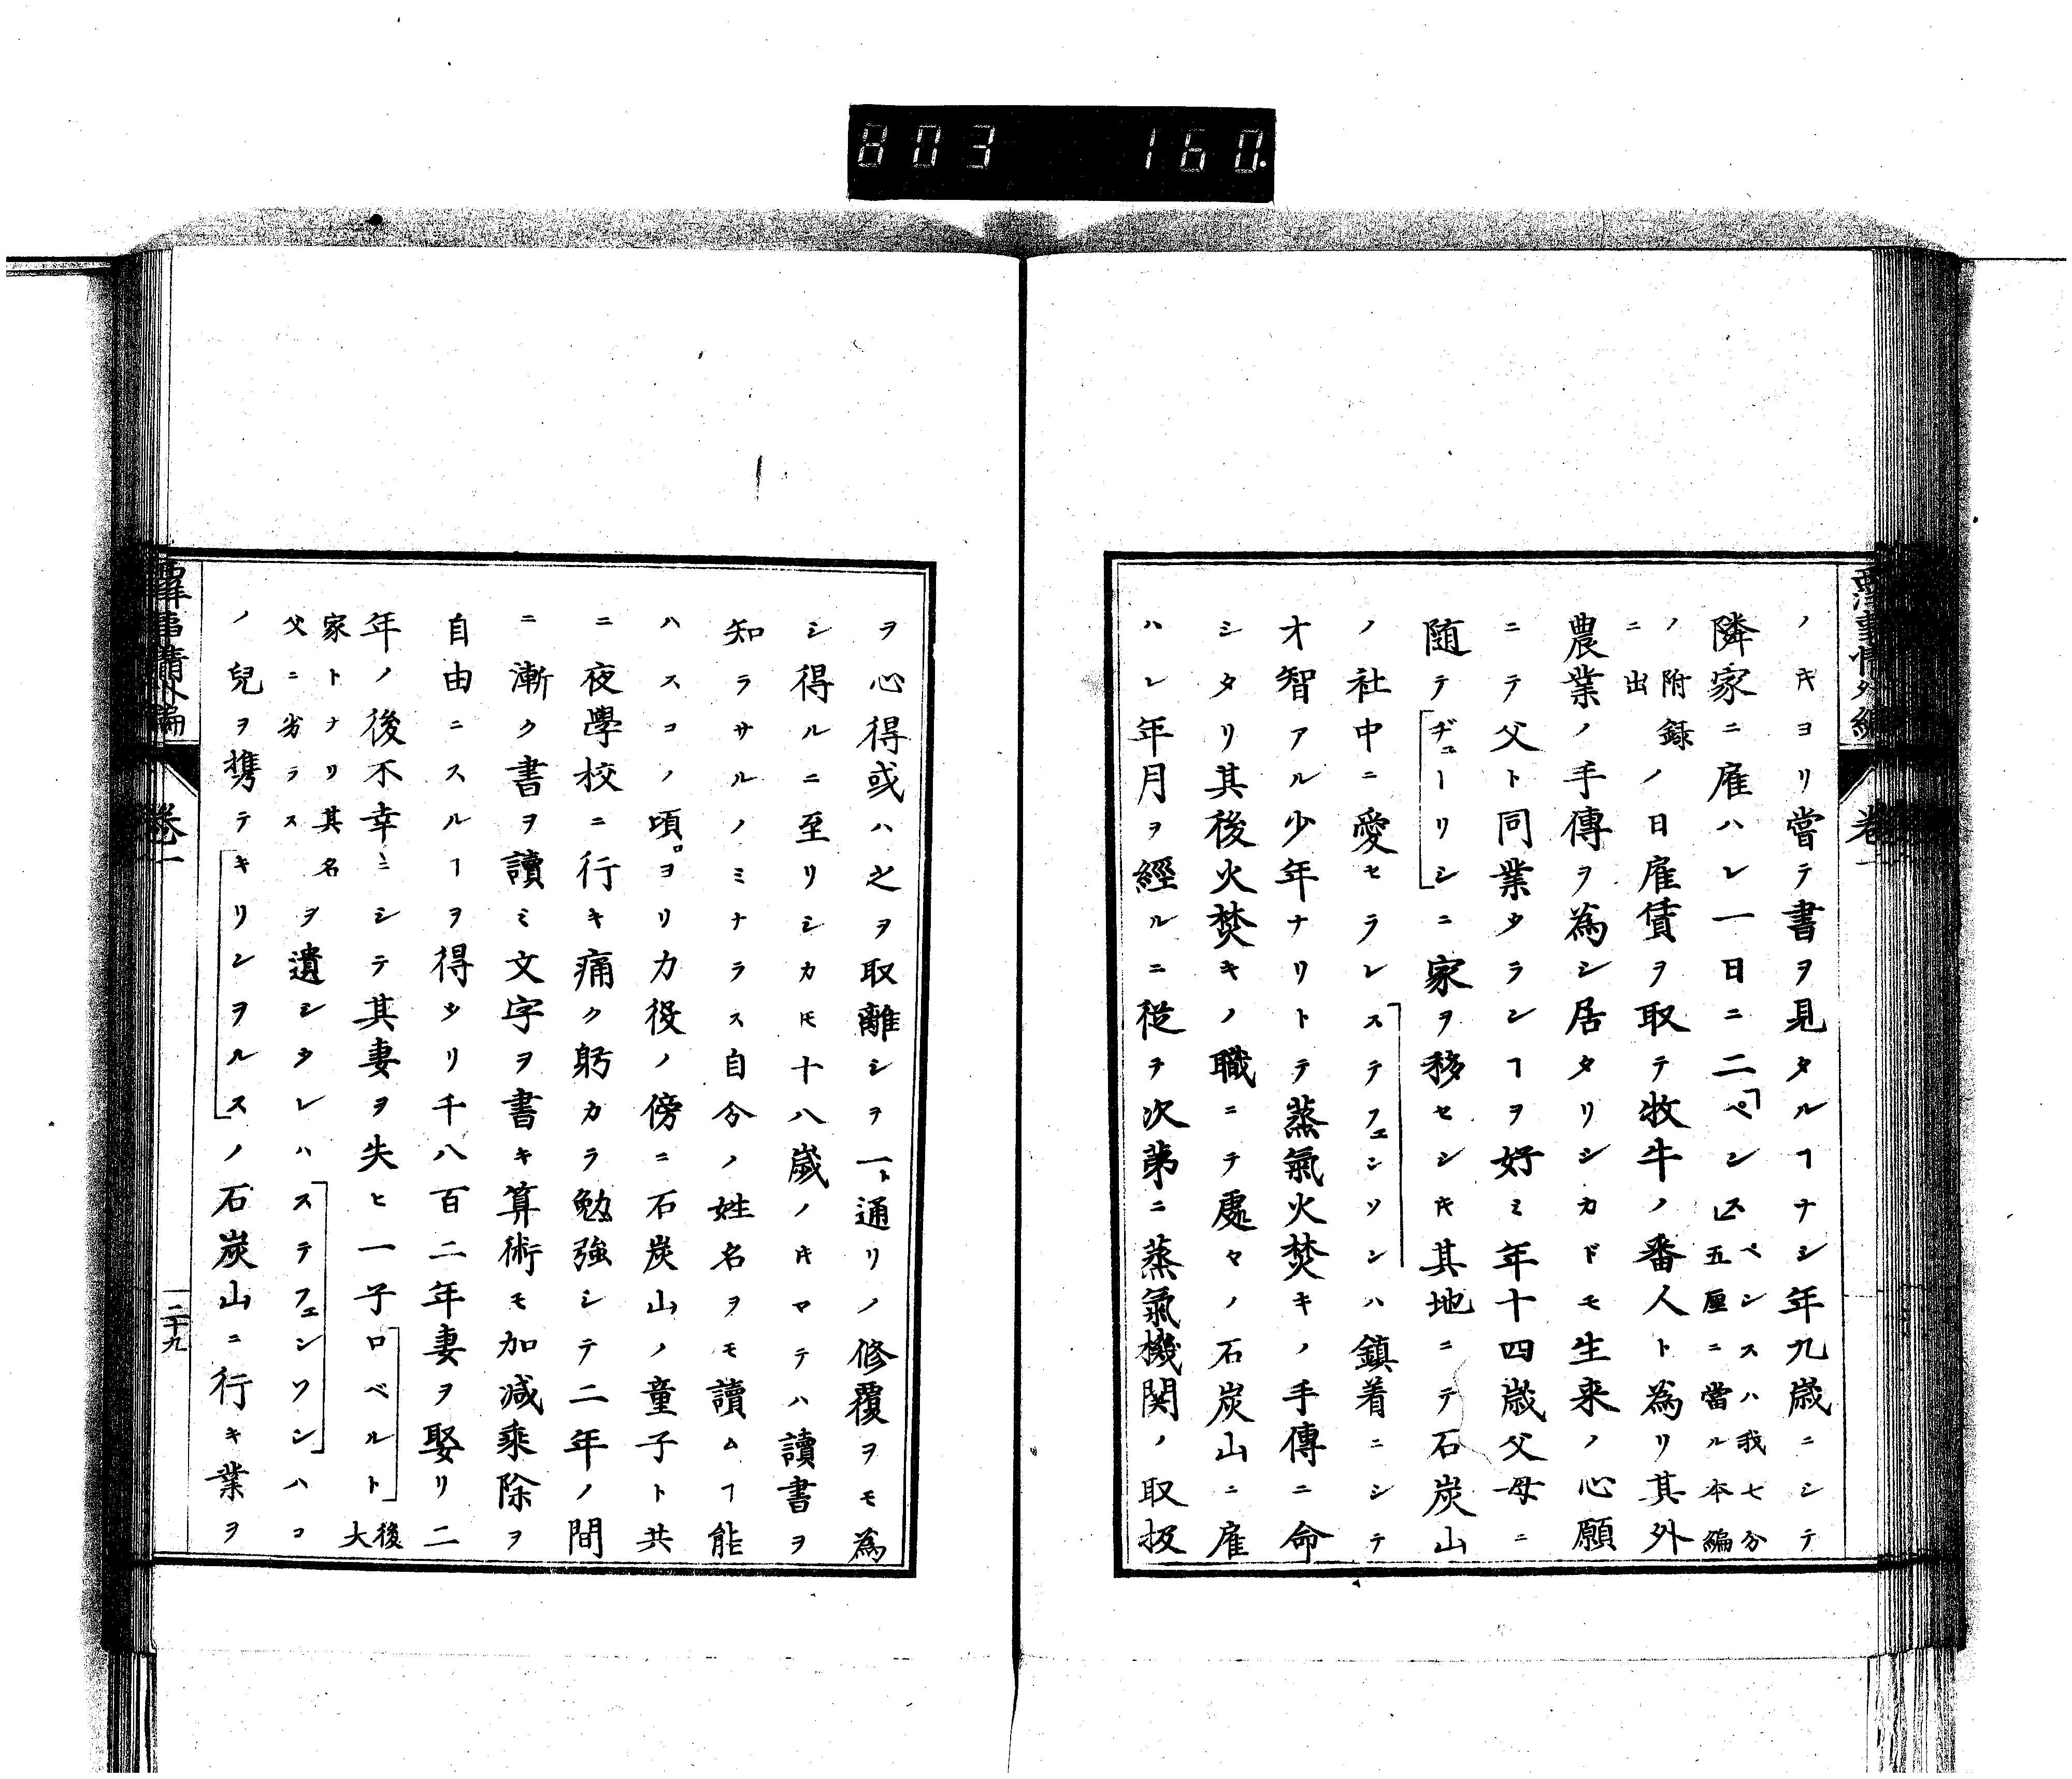 803 160.
西洋事情外編
巻一
ノ𪜈ヨリ嘗テ書ヲ見タルヿナシ年九歳ニシテ
隣家ニ雇ハレ一日ニ二ペンス
一ペンスハ我七分
五厘ニ當ル本編
ノ附録
ニ出
ノ日雇賃ヲ取テ牧牛ノ番人ト為リ其外
農業ノ手傳ヲ為シ居タリシカドモ生来ノ心願
ニテ父ト同業タランヿヲ好ミ年十四歳父母ニ
随テヂューリシニ家ヲ移セシ𪜈其地ニテ石炭山
ノ社中ニ愛セラレステフェンソンハ鎮着ニシテ
才智アル少年ナリトテ蒸氣火焚キノ手傳ニ命
シタリ其後火焚キノ職ニテ處々ノ石炭山ニ雇
ハレ年月ヲ經ルニ従テ次第ニ蒸氣機関ノ取扱
ヲ心得或ハ之ヲ取離シヲ一ト通リノ修覆ヲモ為
シ得ルニ至リシカ𪜈十八歳ノ𪜈マテハ讀書ヲ
知ラサルノミナラス自分ノ姓名ヲモ讀ムヿ能
ハスコノ頃ヨリ力役ノ傍ニ石炭山ノ童子ト共
ニ夜學校ニ行キ痛ク躬カラ勉強シテ二年ノ間
ニ漸ク書ヲ讀ミ文字ヲ書キ算術モ加减乗除ヲ
自由ニスルヿヲ得タリ千八百二年妻ヲ娶リ二
年ノ後不幸ニシテ其妻ヲ失ヒ一子ロベルト
後大
家トナリ其名
父ニ劣ラス
ヲ遺シタレハステフェンソンハコ
ノ兒ヲ携テキリンヲルスノ石炭山ニ行キ業ヲ
西洋事情外編
巻一
二十九